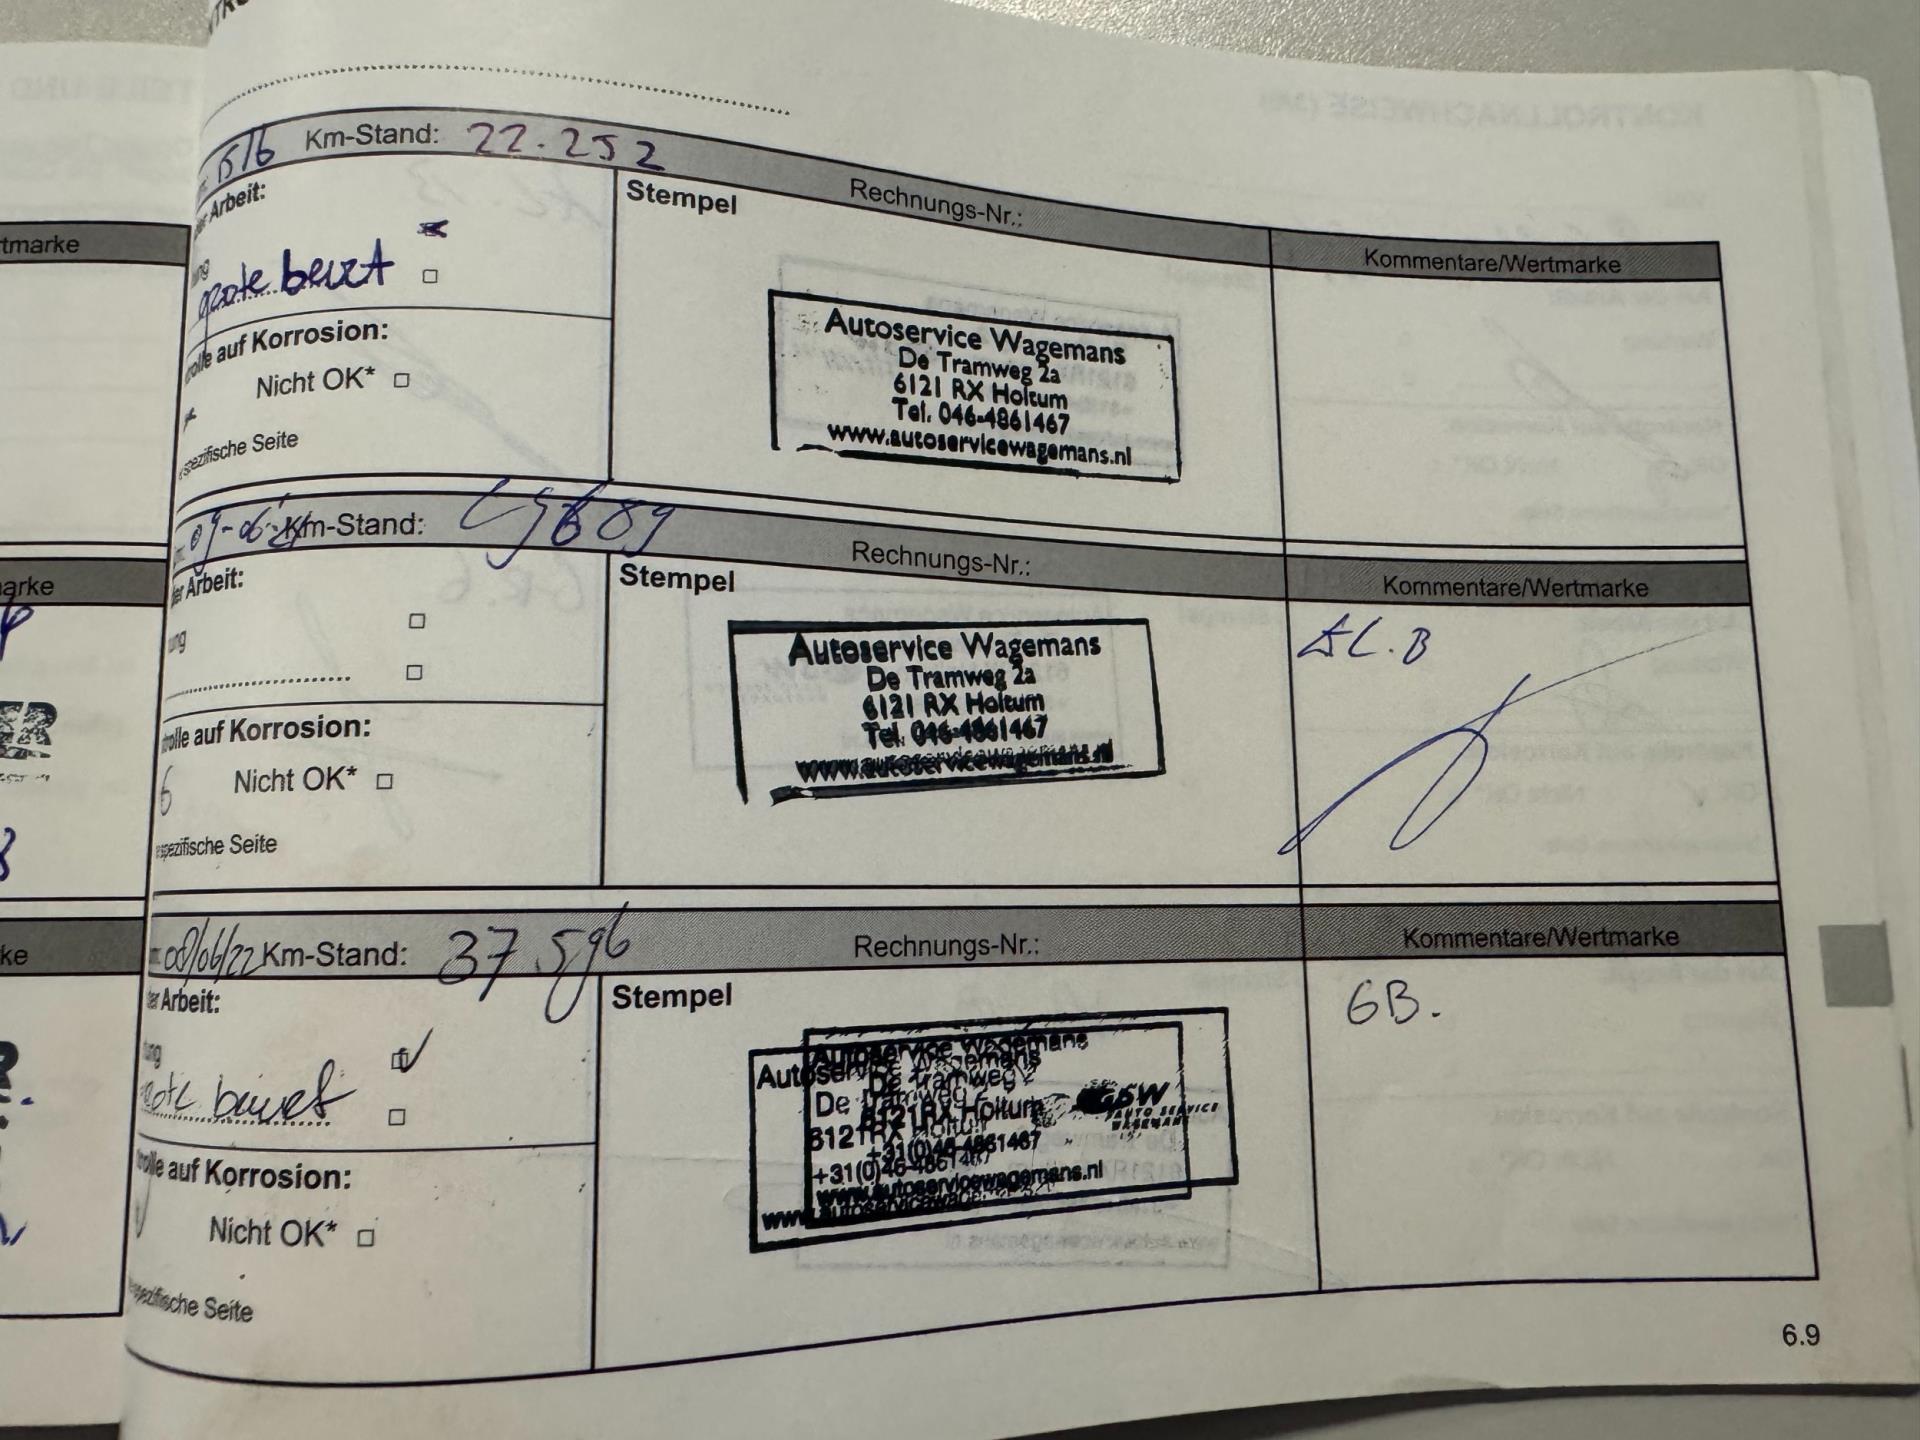 Km-Stand: 22.252
Rechnungs-Nr.:
Kommentare/Wertmarke
Arbeit:
Stempel
grote beurt
auf Korrosion:
Nicht OK*
spezifische Seite
Autoservice Wagemans
De Tramweg 2a
6121 RX Holtum
Tel. 046-4861467
www.autoservicewagemans.nl
Km-Stand:
Rechnungs-Nr.:
Kommentare/Wertmarke
Arbeit:
Stempel
auf Korrosion:
Nicht OK*
spezifische Seite
Autoservice Wagemans
De Tramweg 2a
6121 RX Holtum
Tel. 046-4861467
www.autoservicewagemans.nl
08/06/22 Km-Stand: 37.596
Rechnungs-Nr.:
Kommentare/Wertmarke
Arbeit:
Stempel
auf Korrosion:
Nicht OK*
Seite
Autoservice Wagemans
De Tramweg 2
6121RX Holtum
+31(0)46-4861467
www.autoservicewagemans.nl
GSW
AUTO SERVICE
WAGEMANS
GB.
6.9